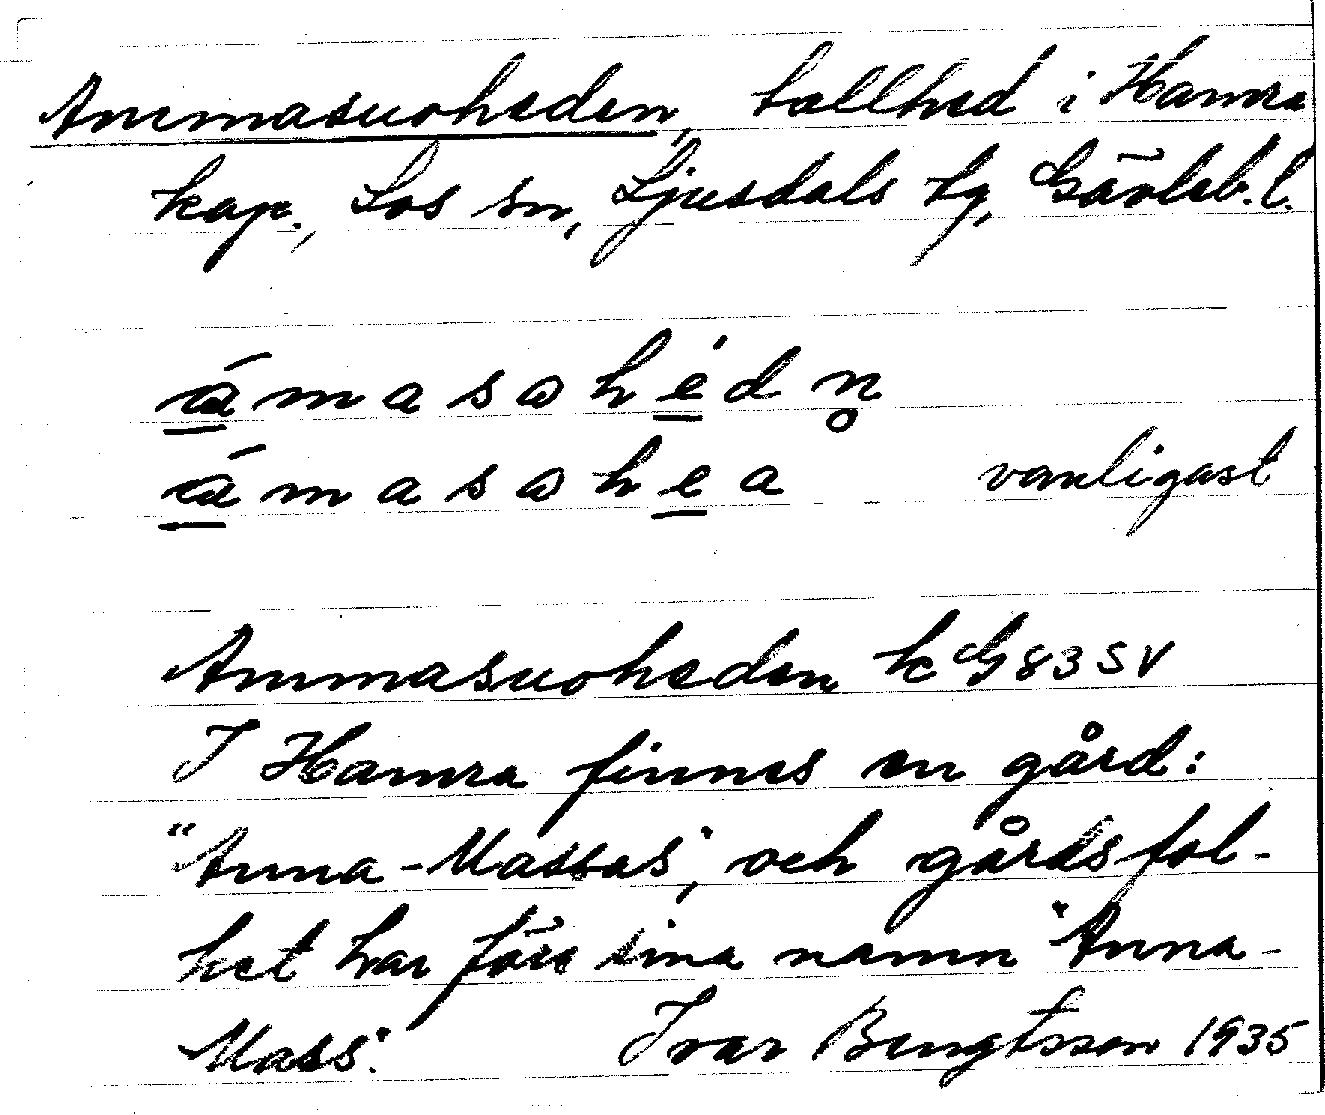 Ammasuoheden, tallhed i Hamra
kap., Los sn, Ljusdals tg, Gävleb. l.
ámasohédn̥
ámasohea vanligast
Ammasuoheden k G 83 SV
I Hamra finnes en gård:
"Anna-Masses", och gårdsfol-
ket har före sina namn "Anna-
Mass".
Ivar Bengtsson 1935